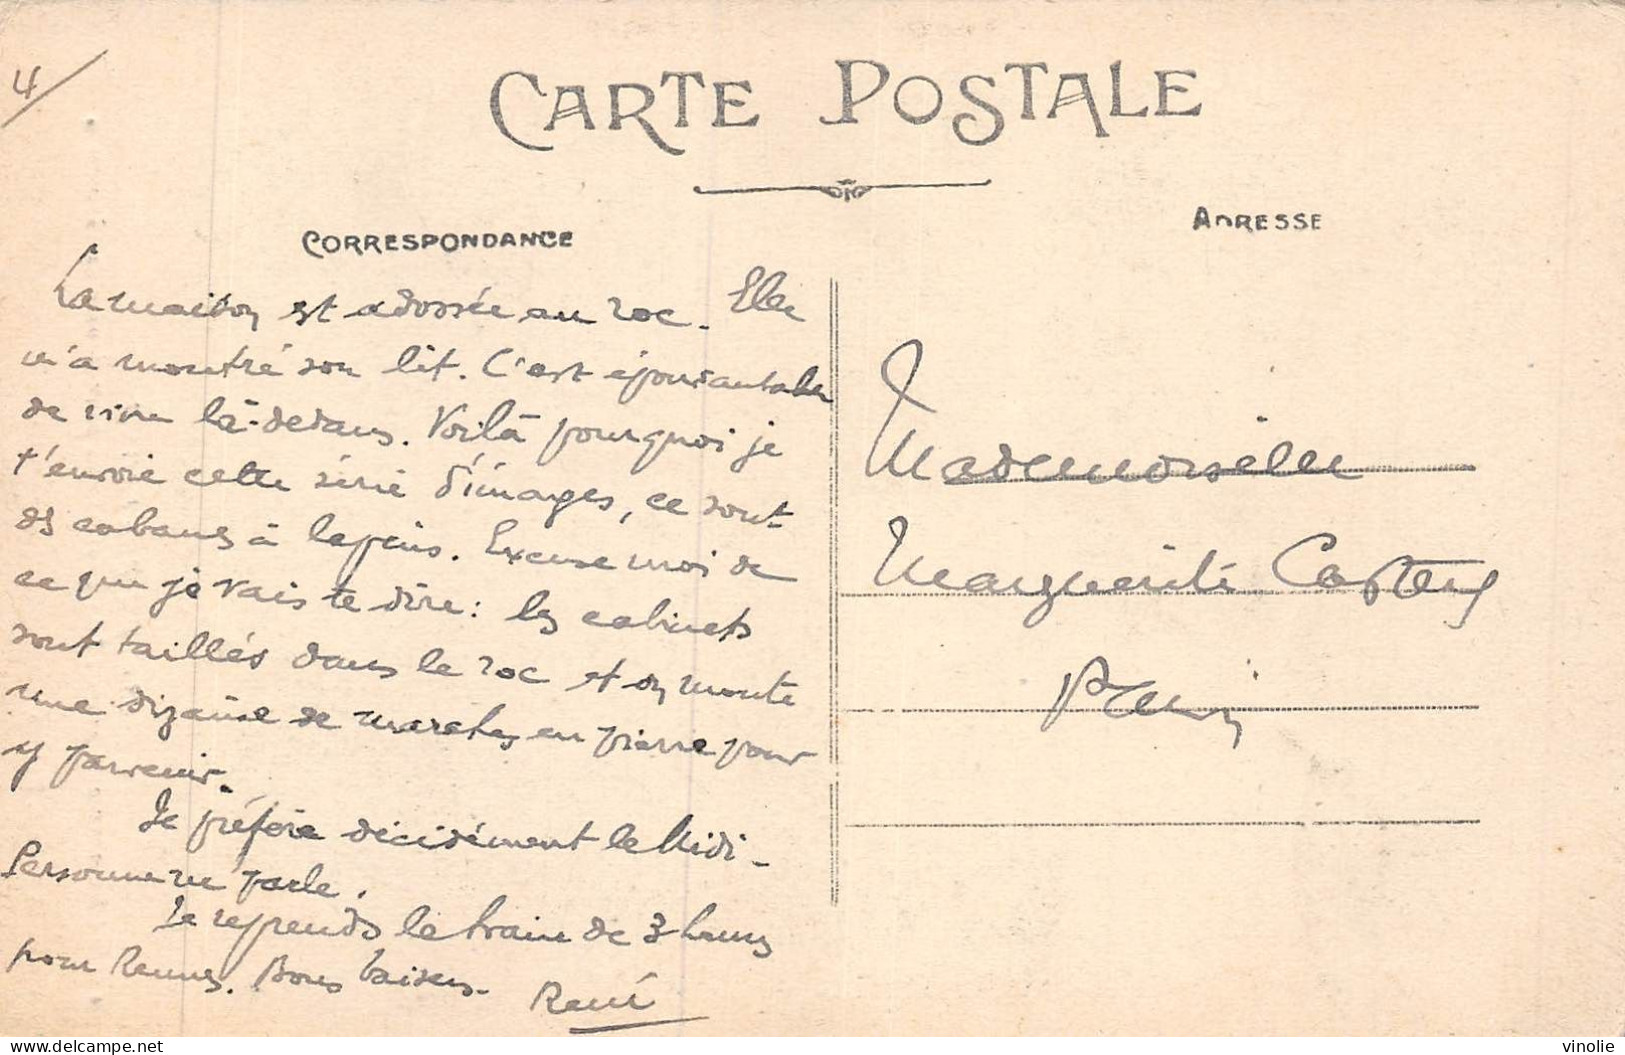 4/
CARTE POSTALE
CORRESPONDANCE
ADRESSE
La maison est adossée au roc. Elle
m'a montré son lit. C'est épouvantable
de vivre là-dedans. Voilà pourquoi je
t'envoie cette série d'images, ce sont
des cabanes à lapins. Excuse moi de
ce que je vais te dire : les cabinets
sont taillés dans le roc et on monte
une dizaine de marches en pierre pour
y parvenir.
Je préfère décidément le Midi -
Personne ne parle.
Je reprends le train de 3 heures
pour Rennes. Bons baisers -
René
Mademoiselle
Marguerite
delcampe.net
vinolie